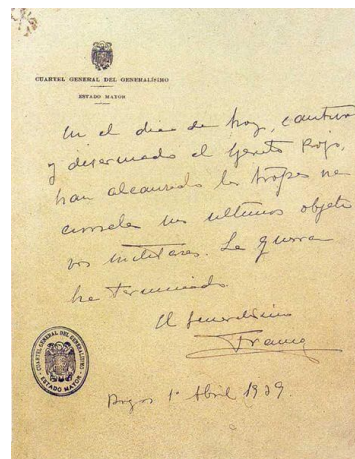 CUARTEL GENERAL DEL GENERALÍSIMO
ESTADO MAYOR
En el día de hoy, cautivo
y desarmado el Ejército Rojo,
han alcanzado las tropas na
cionales sus ultimos objeti
vos militares. La guerra
ha terminado
El Generalísimo
Franco
CUARTEL GENERAL DEL GENERALÍSIMO
ESTADO MAYOR
Burgos 1º Abril 1939.